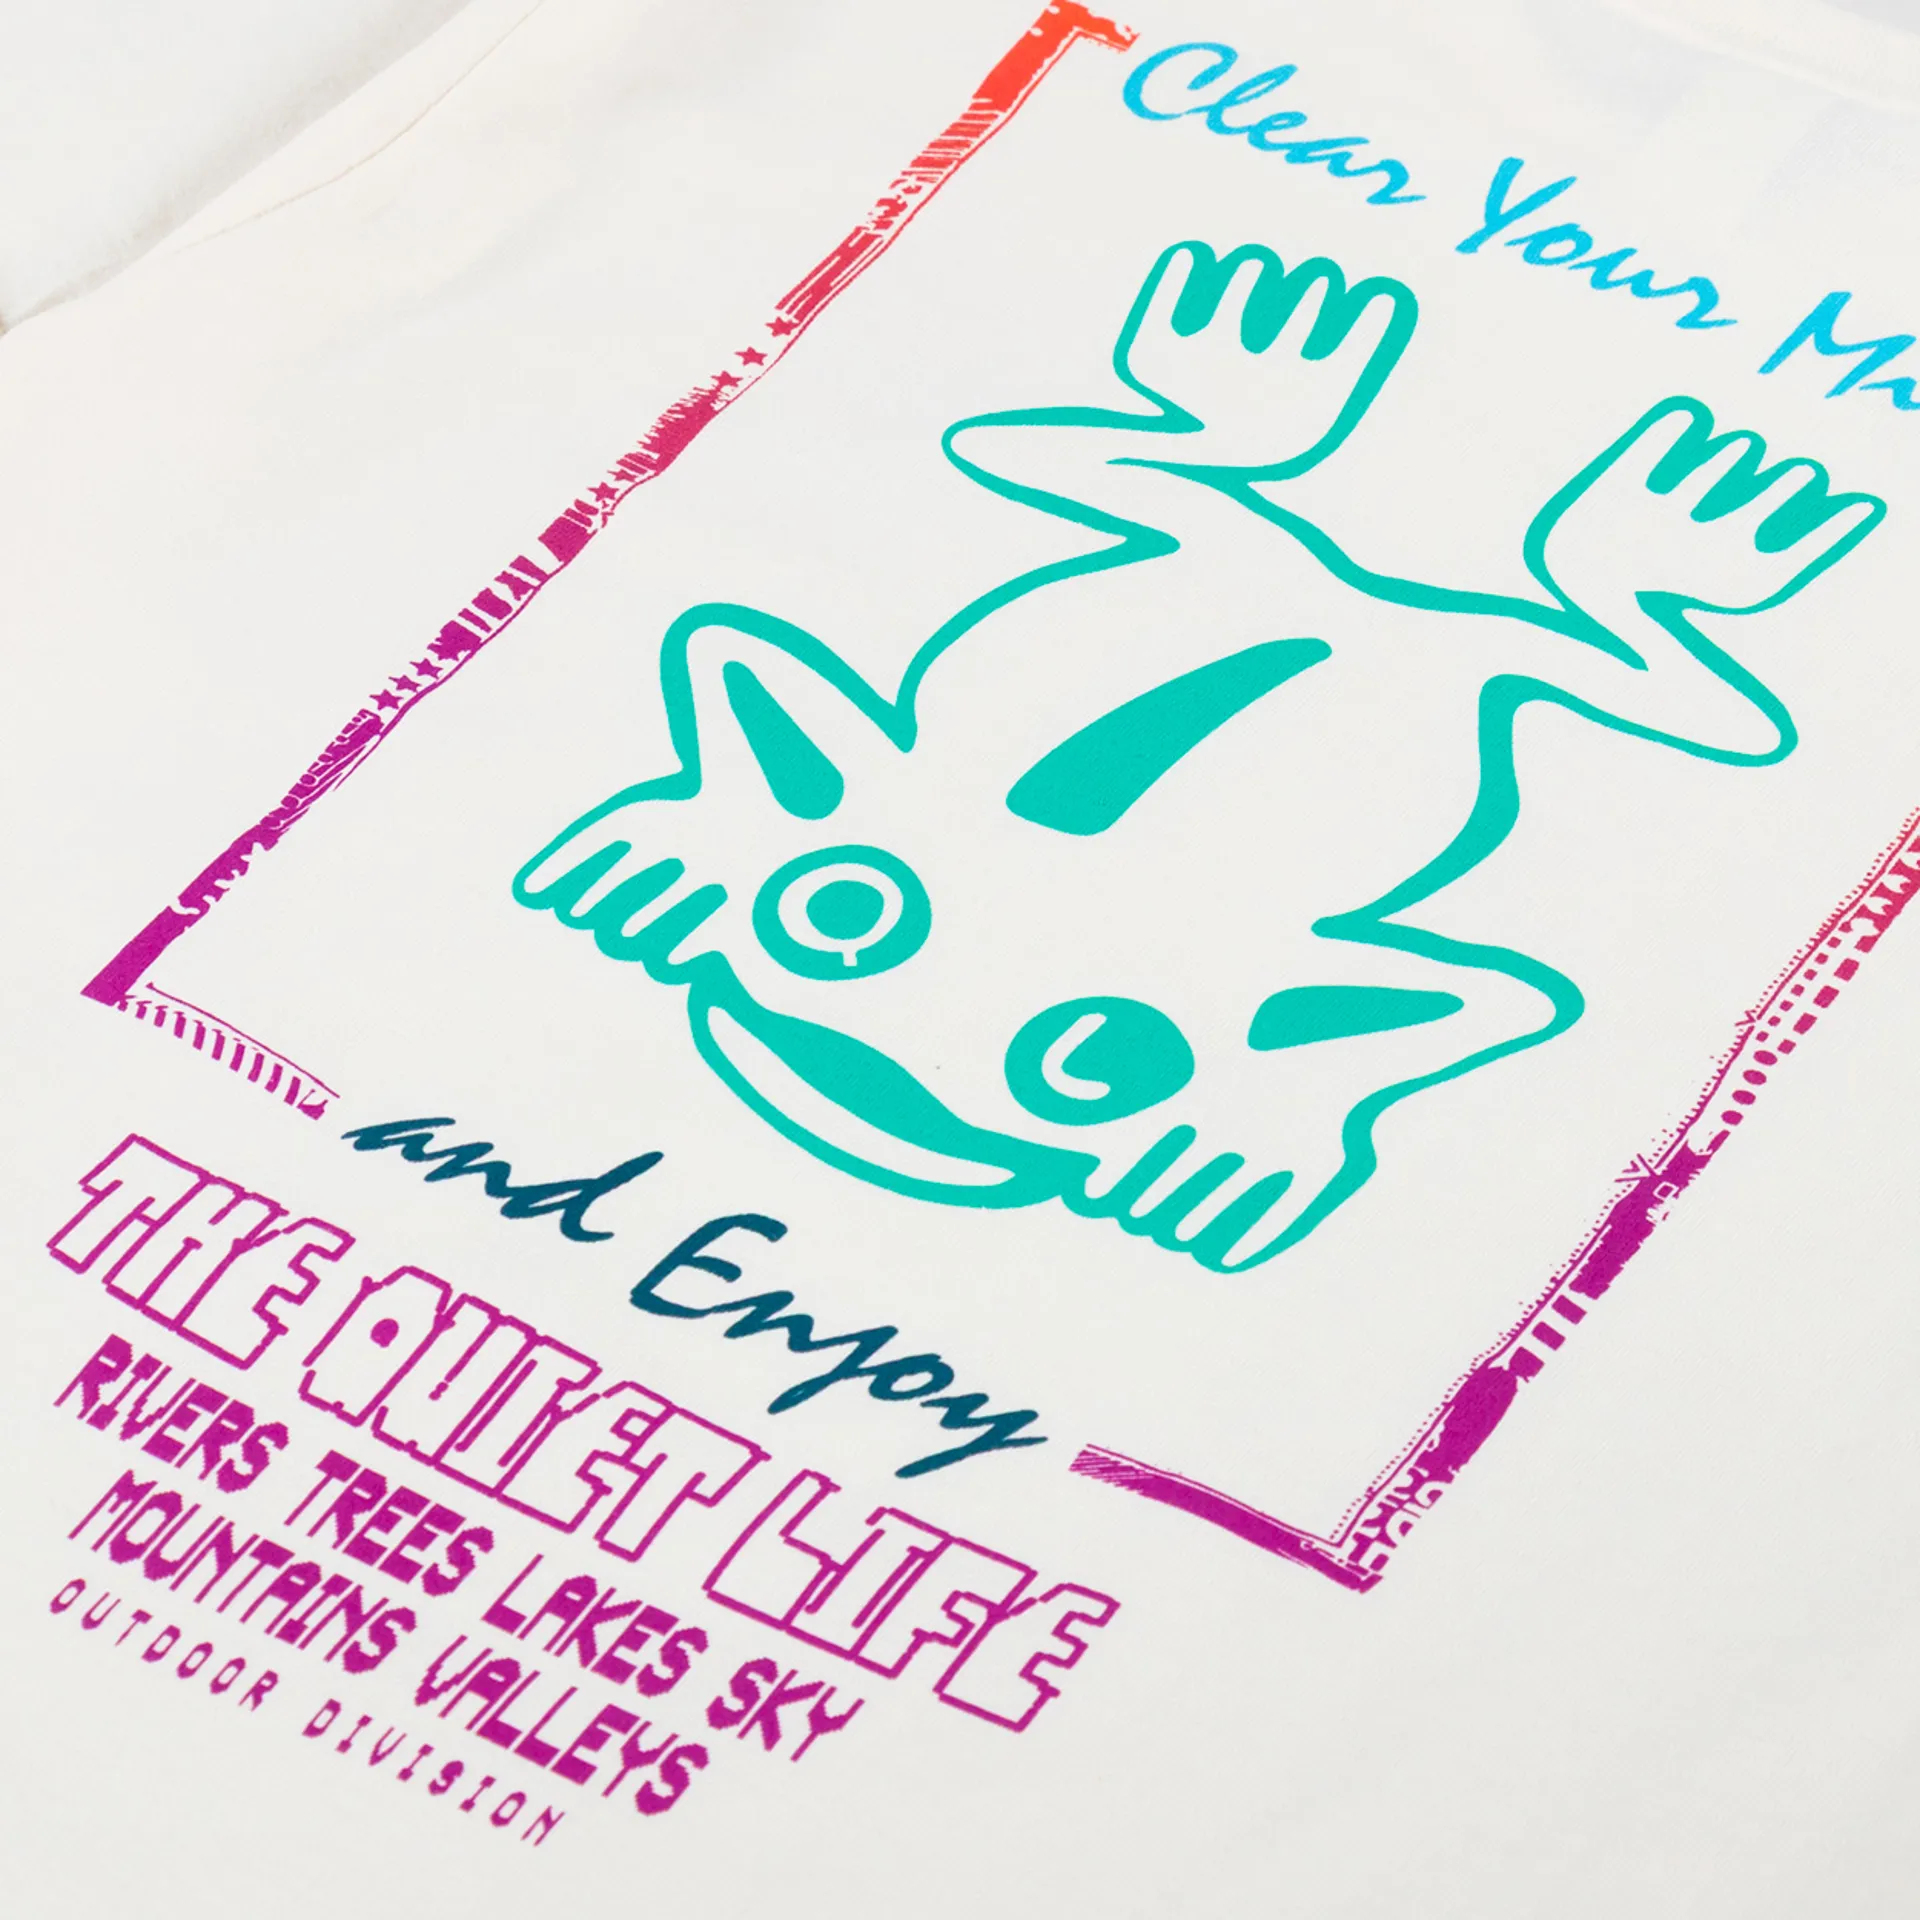 Clear Your
and Enjoy
THE QUIET LIFE
RIVERS TREES LAKES SKY
MOUNTAINS VALLEYS
OUTDOOR DIVISION
Q
L